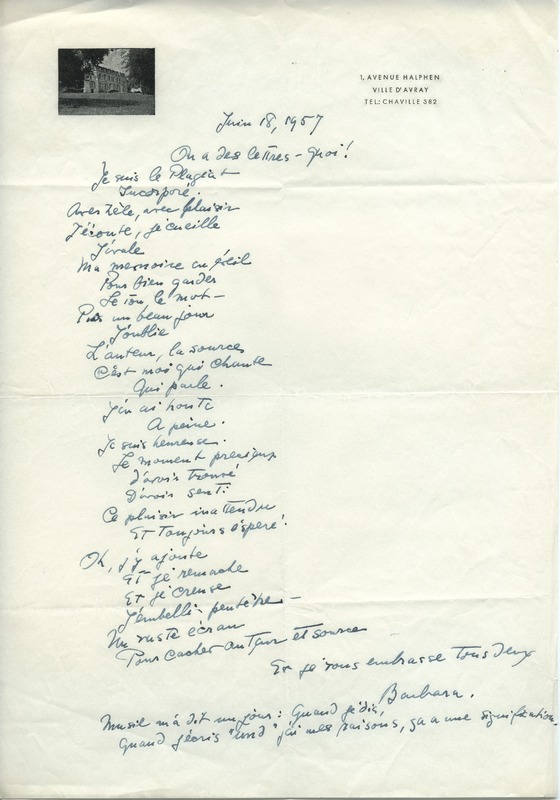 1, AVENUE HALPHEN
VILLE D'AVRAY
TEL: CHAVILLE 382
Juin 18, 1957
On a des lettres - quoi!
Je suis le Plagiat
Incorporé.
Avec zèle, avec plaisir
J'écoute, je cueille
J'avale
Ma memoire en éveil
Pour bien garder
Le ton le mot -
Puis un beau jour
J'oublie
L'auteur, la source
C'est moi qui chante
Qui parle.
J'en ai honte
A peine.
Je suis heureuse.
Le moment precieux
D'avoir trouvé
D'avoir senti
Ce plaisir inattendu
Et toujours espéré!
Oh, j'y ajoute
Et je remache
Et je creuse
J'embellis peutêtre -
Un vaste écran
Pour cacher auteur et source
Et je vous embrasse tous deux
Barbara.
Musil m'a dit un jour: Quand je dis,
Quand j'écris "und" j'ai mes raisons, ça a une signification